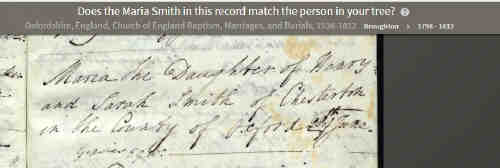 Does the Maria Smith in this record match the person in your tree?
Oxfordshire, England, Church of England Baptism, Marriages, and Burials, 1538-1812 Broughton > 1798 - 1812
Maria the Daughter of Henry
and Sarah Smith of Chesterton
in the County of Oxford June